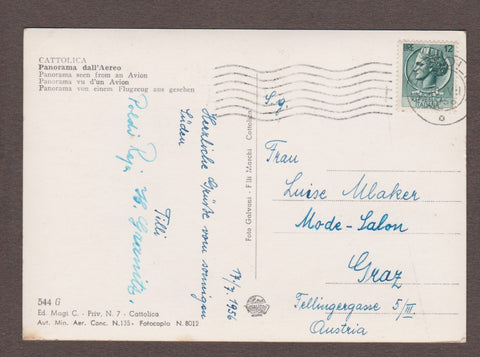 CATTOLICA
Panorama dall'Aereo
Panorama seen from an Avion
Panorama vu d'un Avion
Panorama von einem Flugzeug aus gesehen
LIRE 12
ITALIANA
Herzliche Grüße vom sonnigen
Süden
Tilli
17/7 1956
Poldi
Foto Galvani - F.lli Moschi Cattolica
S.g.
Frau
Luise Mlaker
Mode-Salon
Graz
Fellingergasse 5/III
Austria
544 G
Ed. Magi C. - Priv. N. 7 - Cattolica
Aut. Min. Aer. Conc. N.135 - Fotocopia N. 8012